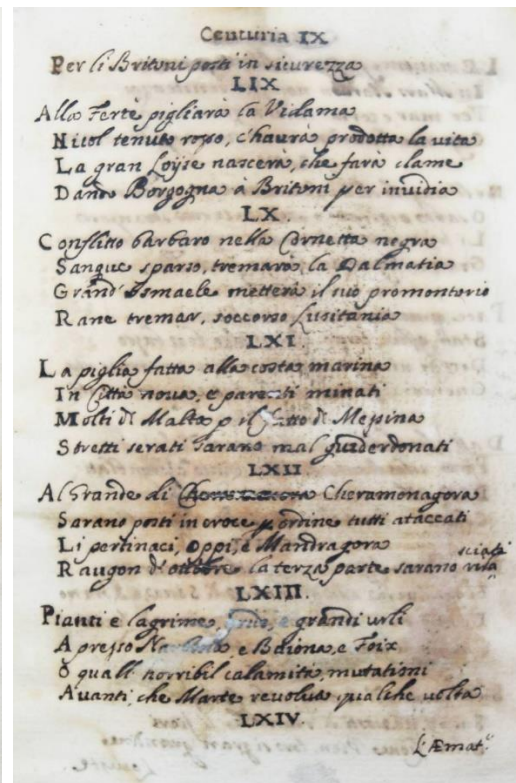 Centuria IX
Per li Britoni posti in sicurezza
LIX
Alla Fertè pigliarà la Vidama
Nicol tenuto rosso, c'haurà prodotta la vita
La gran Loyse nascerà, che farà clame
Dando Borgogna à Britoni per invidia
LX.
Conflitto barbaro nella Cornetta negra
Sangue sparso, tremarà la Dalmatia
Grand' Ismaele metterà il suo promontorio
Rane tremar, soccorso Lusitania
LXI.
La piglia fatta alla costa marina
In Città nova, e parenti minati
Molti di Malta p il fatto di Mesina
Stretti serati sarano mal guiderdonati
LXII
Al Grande di Cheramonagora
Sarano posti in croce p ordine tutti ataccati
Li pertinaci, oppi, e Mandragora
Raugon d'ottobre la terza parte sarano
LXIII.
Pianti e lagrime, gridi, e grandi urli
Apresso Narbona e Baiona, e Foix
O quall' horribil calamità, mutationi
Avanti, che Marte revolva qualche volta
LXIV.
L'Æmat.